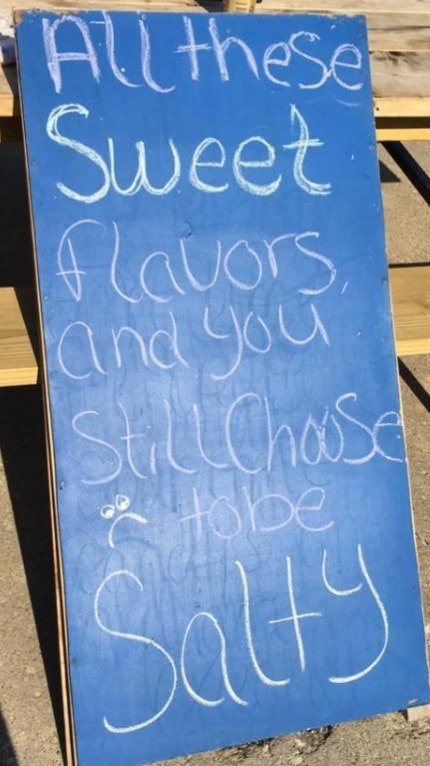 All these
Sweet
flavors,
and you
Still Choose
to be
Salty